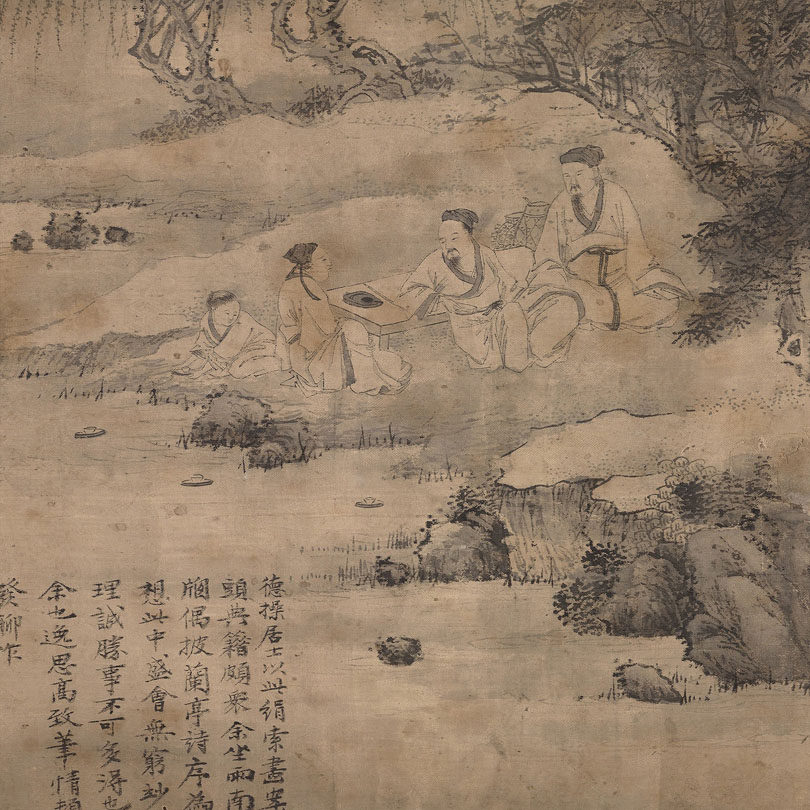 德操居士以此絹索畫案
頭典籍頗眾余坐雨南
牕偶披蘭亭詩序為
想此中盛會無窮妙
理誠勝事不可多得也
余也逸思高致筆情頓
發聊作